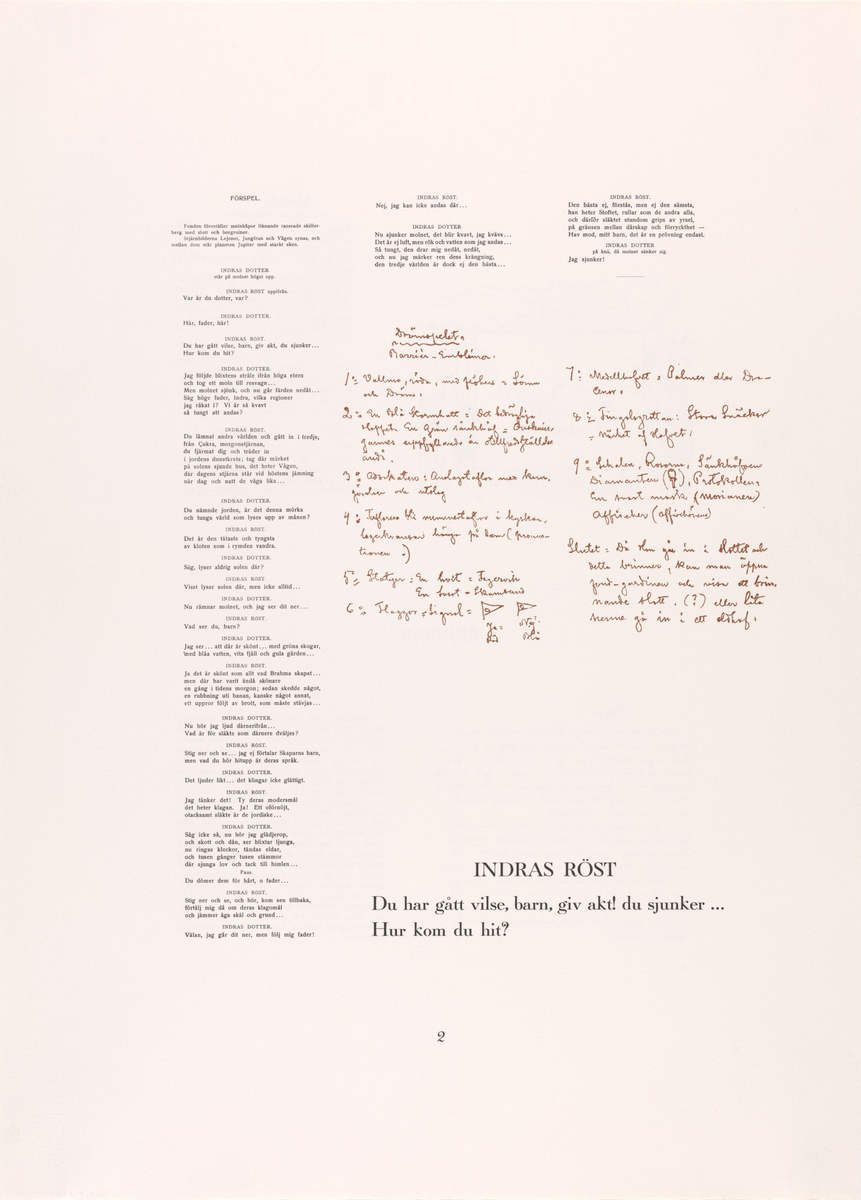 FÖRSPEL.
Fonden föreställer molnkåpor liknande raserade skiffer-
berg med slott och borgruiner.
Stjärnbilderna Lejonet, Jungfrun och Vågen synas, och
mellan dem står planeten Jupiter med starkt sken.
INDRAS DOTTER
står på molnet högst opp.
INDRAS RÖST uppifrån.
Var är du dotter, var?
INDRAS DOTTER.
Här, fader, här!
INDRAS RÖST.
Du har gått vilse, barn, giv akt, du sjunker...
Hur kom du hit?
INDRAS DOTTER.
Jag följde blixtens stråle ifrån höga etern
och tog ett moln till resvagn...
Men molnet sjönk, och nu går färden nedåt...
Säg höge fader, Indra, vilka regioner
jag råkat i? Vi är så kvavt
så tungt att andas?
INDRAS RÖST.
Du lämnat andra världen och gått in i tredje,
från Çukra, morgonstjärnan,
du fjärmat dig och träder in
i jordens dunstkrets; tag där märket
på solens sjunde hus, det heter Vågen,
där dagens stjärna står vid höstens jämning
när dag och natt de väga lika...
INDRAS DOTTER.
Du nämnde jorden, är det denna mörka
och tunga värld som lyses upp av månen?
INDRAS RÖST.
Det är den tätaste och tyngsta
av kloten som i rymden vandra.
INDRAS DOTTER.
Säg, lyser aldrig solen där?
INDRAS RÖST.
Visst lyser solen där, men icke alltid...
INDRAS DOTTER.
Nu rämnar molnet, och jag ser dit ner...
INDRAS RÖST.
Vad ser du, barn?
INDRAS DOTTER.
Jag ser... att där är skönt... med gröna skogar,
med blåa vatten, vita fjäll och gula gärden...
INDRAS RÖST.
Ja det är skönt som allt vad Brahma skapat...
men där har varit ändå skönare
en gång i tidens morgon; sedan skedde något,
en rubbning uti banan, kanske något annat,
ett uppror följt av brott, som måste stävjas...
INDRAS DOTTER.
Nu hör jag ljud därnerifrån...
Vad är för släkte som därnere dväljes?
INDRAS RÖST.
Stig ner och se... jag ej förtalar Skaparns barn,
men vad du hör hitupp är deras språk.
INDRAS DOTTER.
Det ljuder likt... det klingar icke glättigt.
INDRAS RÖST.
Jag tänker det! Ty deras modersmål
det heter klagan. Ja! Ett oförnöjt,
otacksamt släkte är de jordiske...
INDRAS DOTTER.
Säg icke så, nu hör jag glädjerop,
och skott och dån, ser blixtar ljunga,
nu ringas klockor, tändas eldar,
och tusen gånger tusen stämmor
där sjunga lov och tack till himlen...
Paus.
Du dömer dem för hårt, o fader...
INDRAS RÖST.
Stig ner och se, och hör, kom sen tillbaka,
förtälj mig då om deras klagomål
och jämmer äga skäl och grund...
INDRAS DOTTER.
Välan, jag går dit ner, men följ mig fader!
INDRAS RÖST.
Nej, jag kan icke andas där...
INDRAS DOTTER
Nu sjunker molnet, det blir kvavt, jag kvävs...
Det är ej luft, men rök och vatten som jag andas...
Så tungt, den drar mig nedåt, nedåt,
och nu jag märker ren dess krängning,
den tredje världen är dock ej den bästa...
INDRAS RÖST.
Den bästa ej, förstås, men ej den sämsta,
han heter Stoftet, rullar som de andra alla,
och därför släktet stundom grips av yrsel,
på gränsen mellan dårskap och förryckthet —
Hav mod, mitt barn, det är en prövning endast.
INDRAS DOTTER
på knä, då molnet sänker sig.
Jag sjunker!
Drömspelet.
Barrièr-Emblemer.
1: Vallmo, röda, med fröhus = Sömn
och Dröm.
2: En blå Stormhatt = Det bedrägliga
Hoppet. En Grön sänkhåf = Önsknin-
garnes uppfyllande är otillfredsställdt
ändå.
3: Advokaten: Anslagstaflor med
4: Taflorna bli nummertaflor i kyrkan,
lagerkransar hänga på dem (promo-
tionen.)
5: Statyer: En hvit = Fagervik
En svart = Skamsund
6: Flaggor, Signal =
Ja: Nej:
Röd Blå
7: : Palmer eller Dra-
cenor.
8: Fingalsgrottan: Stora Snäckor
= närhet af Hafvet.
9: Schalen, Rosorna, Sänkhåfven
Diamanten, Protokollen,
En svart mask (Morianen)
Affischer (affischören)
Slutet: Då hon går in i slottet och
detta brinner, kan man öppna
fond-gardinen och visa ett brin-
nande slott. (?) eller låta
henne gå in i ett eldhaf.
INDRAS RÖST
Du har gått vilse, barn, giv akt! du sjunker ...
Hur kom du hit?
2